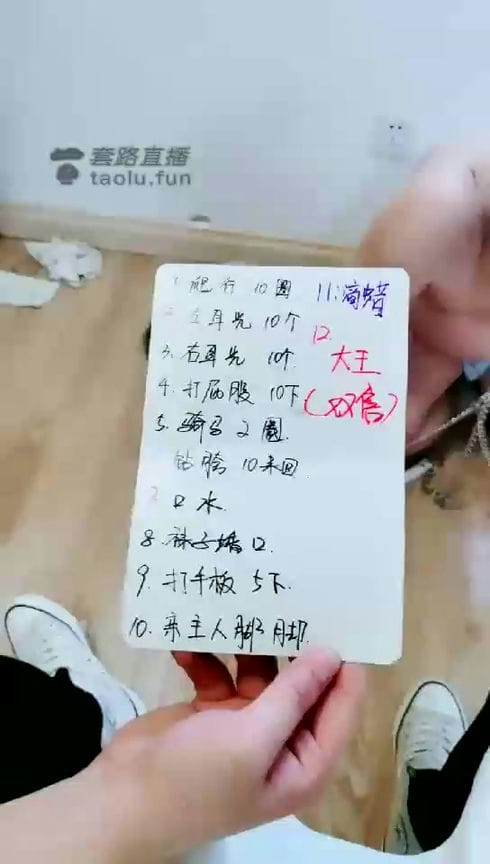 套路直播
taolu.fun
1. 爬行 10圈
11: 滴蜡
2. 左耳光 10个
12.
3. 右耳光 10个
大王
4. 打屁股 10下
(双倍)
5. 骑马 2圈.
钻胯 10来回
7 口水.
8. 袜子 口.
9. 打手板 5下.
10. 亲主人脚